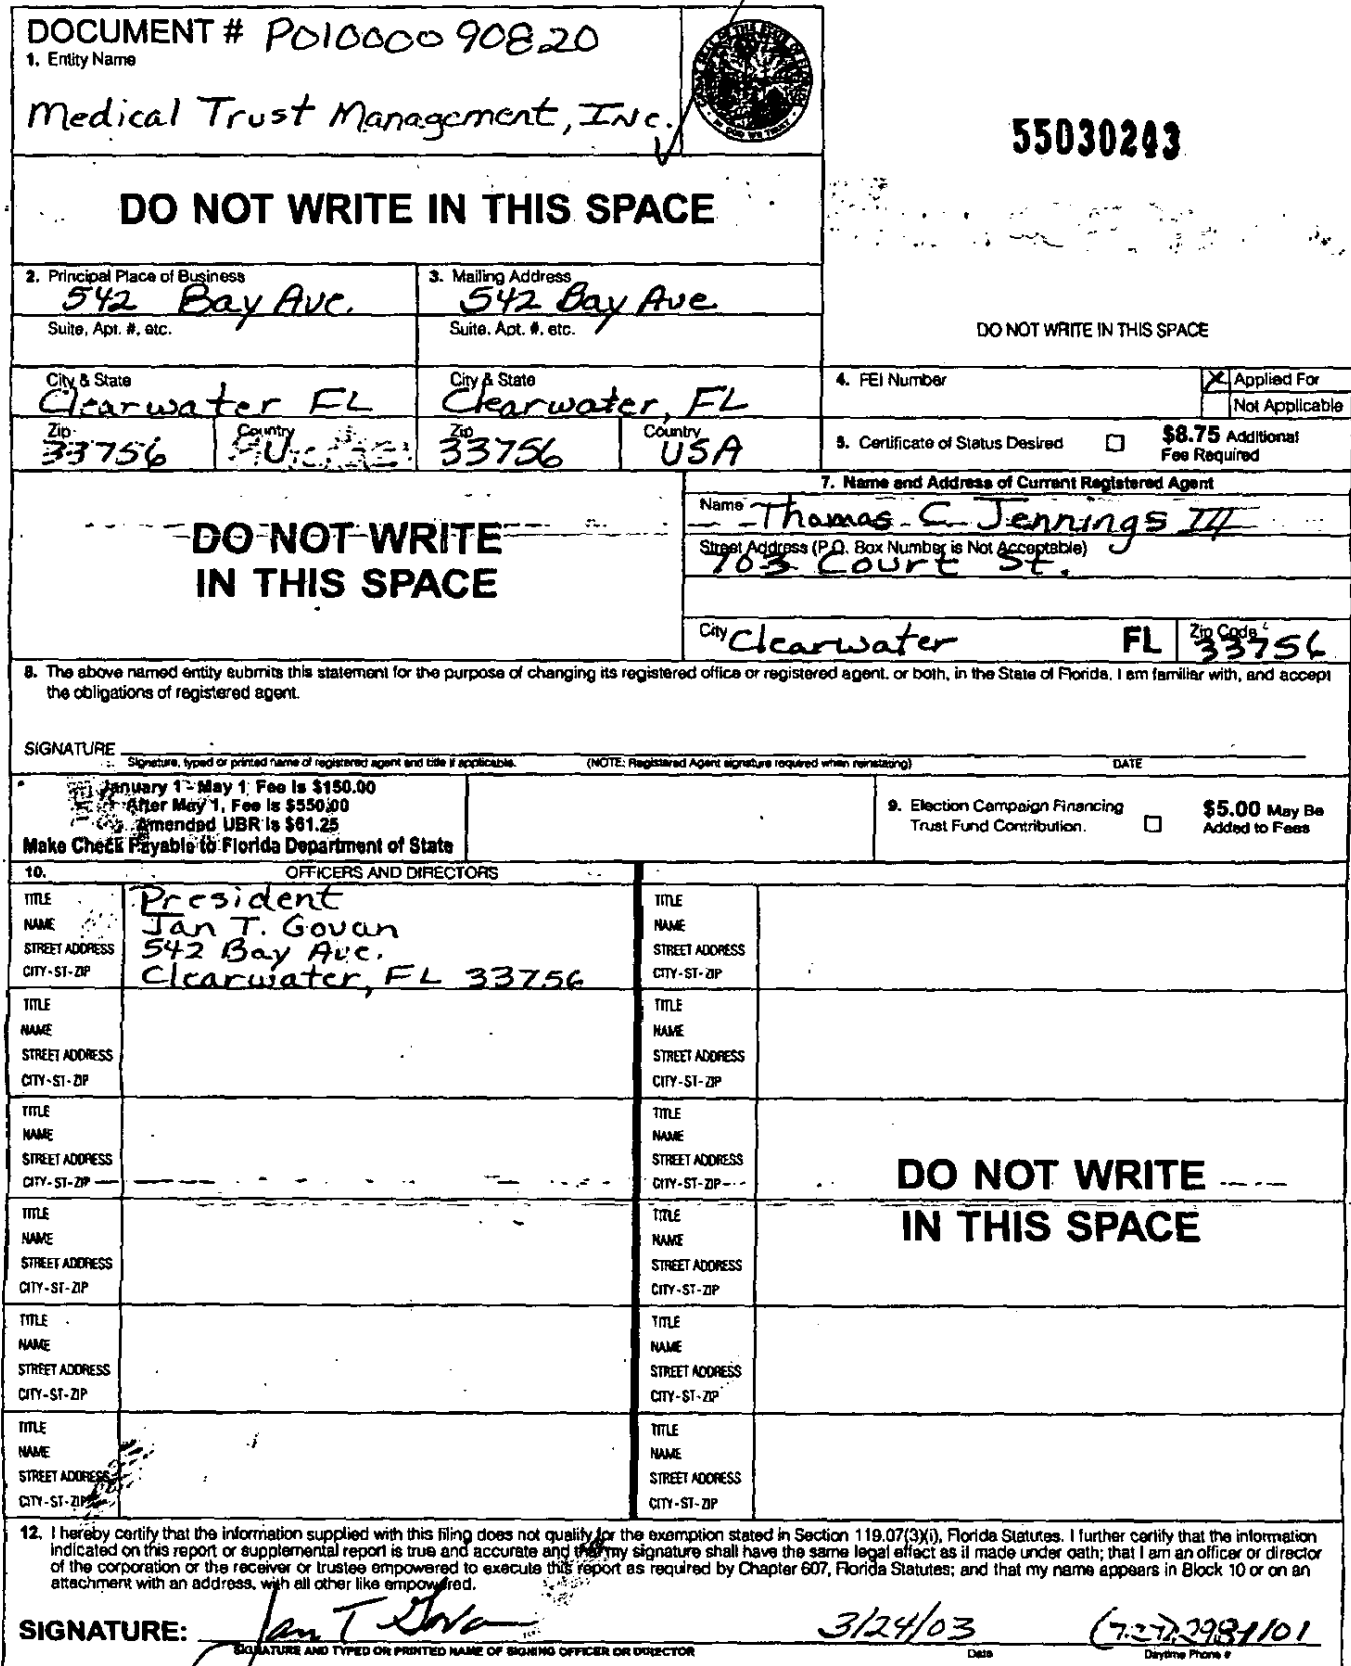 DOCUMENT # P01000090820
1. Entity Name
Medical Trust Management, Inc.
55030243
DO NOT WRITE IN THIS SPACE
2. Principal Place of Business
542 Bay Ave.
3. Mailing Address
542 Bay Ave
Suite, Apt. #, etc.
Suite, Apt. #, etc.
DO NOT WRITE IN THIS SPACE
City & State
Clearwater FL
City & State
Clearwater, FL
4. FEI Number
X Applied For
Not Applicable
Zip
33756
Country
Zip
33756
Country
USA
5. Certificate of Status Desired
$8.75 Additional
Fee Required
7. Name and Address of Current Registered Agent
Name Thomas C Jennings III
DO NOT WRITE
IN THIS SPACE
Street Address (P.O. Box Number is Not Acceptable)
703 Court St.
City Clearwater FL Zip Code 33756
8. The above named entity submits this statement for the purpose of changing its registered office or registered agent, or both, in the State of Florida. I am familiar with, and accept
the obligations of registered agent.
SIGNATURE
Signature, typed or printed name of registered agent and title if applicable. (NOTE: Registered Agent signature required when reinstating) DATE
January 1 - May 1, Fee is $150.00
After May 1, Fee is $550.00
Amended UBR is $61.25
Make Check Payable to Florida Department of State
9. Election Campaign Financing
Trust Fund Contribution.
$5.00 May Be
Added to Fees
10. OFFICERS AND DIRECTORS
TITLE President
NAME Jan T. Govan
STREET ADDRESS 542 Bay Ave.
CITY-ST-ZIP Clearwater, FL 33756
TITLE
NAME
STREET ADDRESS
CITY-ST-ZIP
TITLE
NAME
STREET ADDRESS
CITY-ST-ZIP
TITLE
NAME
STREET ADDRESS
CITY-ST-ZIP
TITLE
NAME
STREET ADDRESS
CITY-ST-ZIP
TITLE
NAME
STREET ADDRESS
CITY-ST-ZIP
TITLE
NAME
STREET ADDRESS
CITY-ST-ZIP
TITLE
NAME
STREET ADDRESS
CITY-ST-ZIP
TITLE
NAME
STREET ADDRESS
CITY-ST-ZIP
DO NOT WRITE
IN THIS SPACE
TITLE
NAME
STREET ADDRESS
CITY-ST-ZIP
TITLE
NAME
STREET ADDRESS
CITY-ST-ZIP
TITLE
NAME
STREET ADDRESS
CITY-ST-ZIP
12. I hereby certify that the information supplied with this filing does not qualify for the exemption stated in Section 119.07(3)(i), Florida Statutes. I further certify that the information
indicated on this report or supplemental report is true and accurate and that my signature shall have the same legal effect as if made under oath; that I am an officer or director
of the corporation or the receiver or trustee empowered to execute this report as required by Chapter 607, Florida Statutes; and that my name appears in Block 10 or on an
attachment with an address, with all other like empowered.
SIGNATURE: Jan T Gova 3/24/03 (727) 2981101
SIGNATURE AND TYPED OR PRINTED NAME OF SIGNING OFFICER OR DIRECTOR Date Daytime Phone #